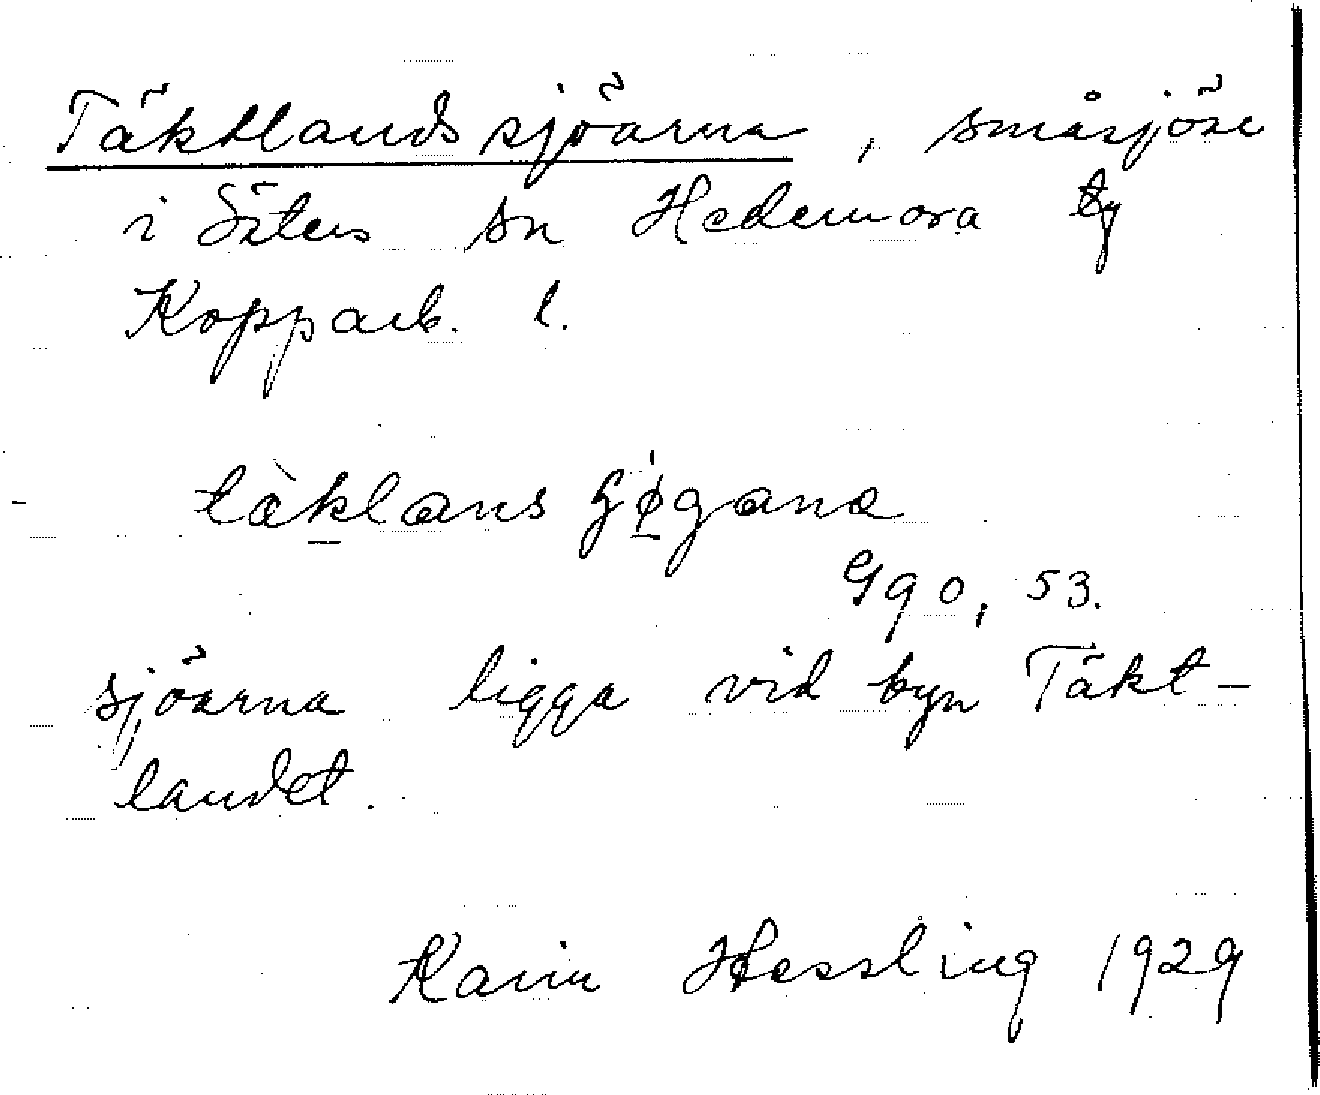 Täktlandssjöarna, småsjöar
i Säters sn Hedemora tg
Kopparb. l.
sjöarna ligga vid byn Täkt-
landet.
Karin Hessling 1929